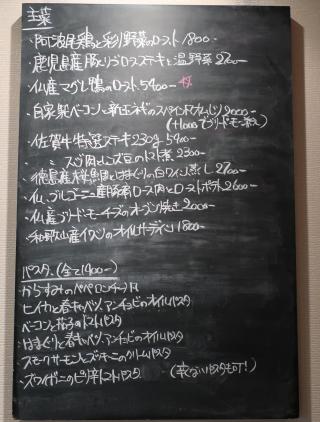 主菜
・阿波尾鶏と彩り野菜のロースト 1800-
・鹿児島産豚ロースステーキと温野菜 2200-
・仏産マグレ鴨のロースト 5400-
・自家製ベーコンと新玉ネギの 2000-
(+1000でブリ・ド・モー
・佐賀牛特選ステーキ230g 5900-
・〃 スジ肉と豆のトマト煮 2300-
・徳島産 とはまぐりの白ワイン蒸し 2700-
・仏ブルゴーニュ産 ロース肉とローストポテト 2600-
・仏産ブリ・ド・モーチーズのオーブン焼き 2000-
・和歌山産イワシのオイルサーディン 1800-
パスタ (全て1400-)
・からすみのペペロンチーノ
・ヒイカと春キャベツ、アンチョビのオイルパスタ
・ベーコンと茄子のトマトパスタ
・はまぐりと春キャベツ、アンチョビのオイルパスタ
・スモークサーモンとズッキーニのクリームパスタ
・ズワイガニのピリ辛トマトパスタ (辛くないパスタも可!)